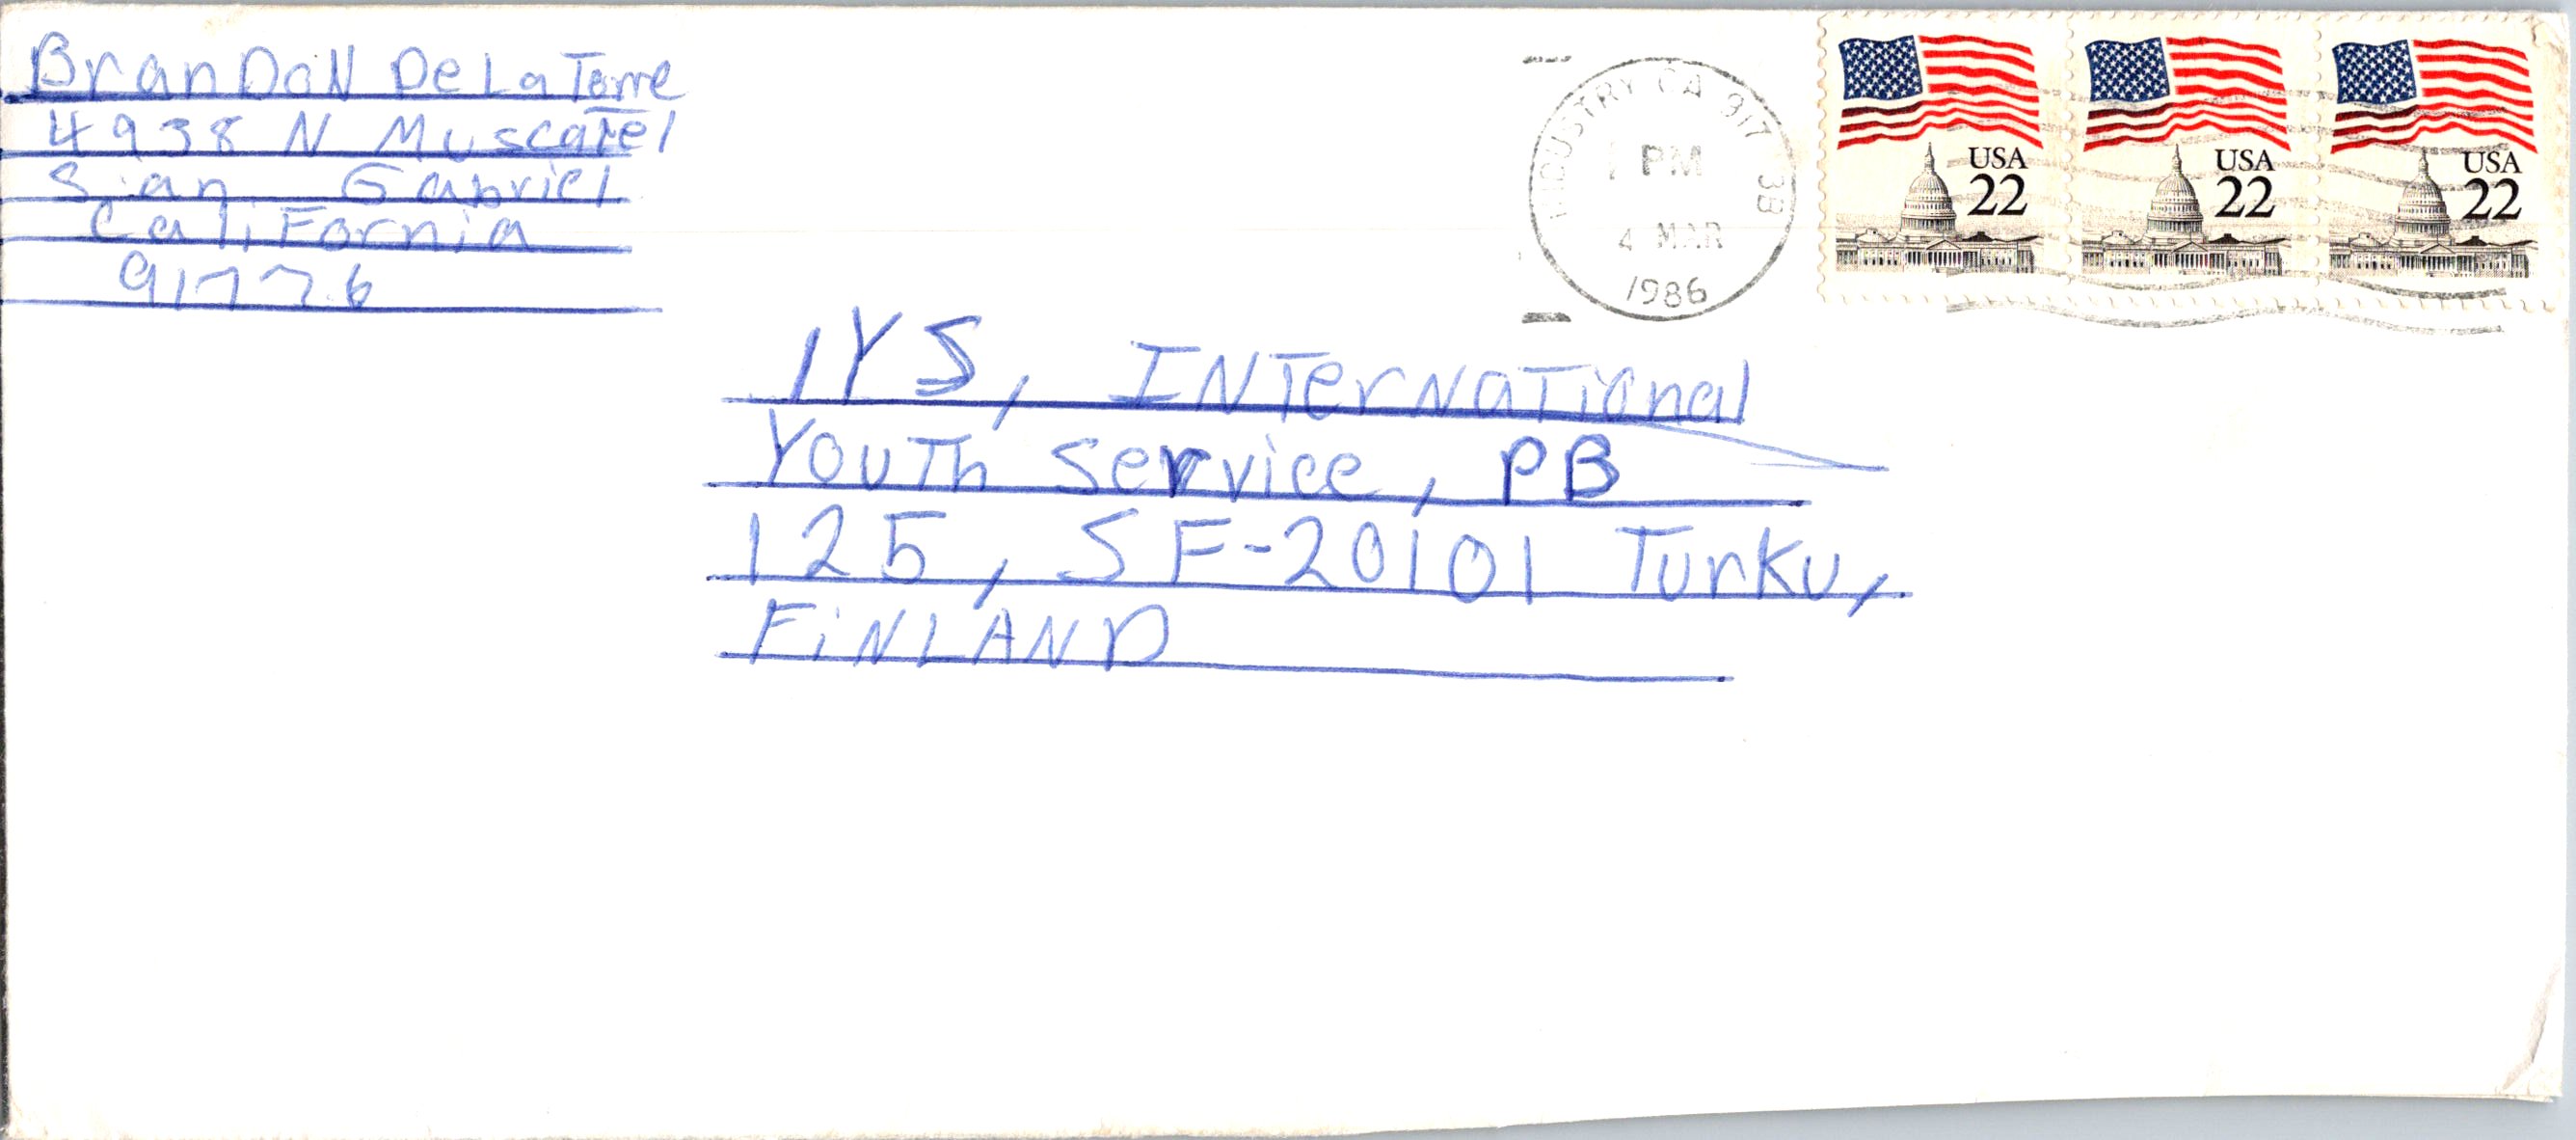 BranDoN DeLaTorre
4938 N Muscatel
San Gabriel
California
91776
INDUSTRY CA 917
PM
4 MAR
1986
USA
22
USA
22
USA
22
IYS, INTerNaTional
YouTh service, PB
125, SF-20101 Turku,
FiNLAND